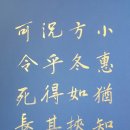 小惠猶知
方冬如挾
況乎得其
可令死長